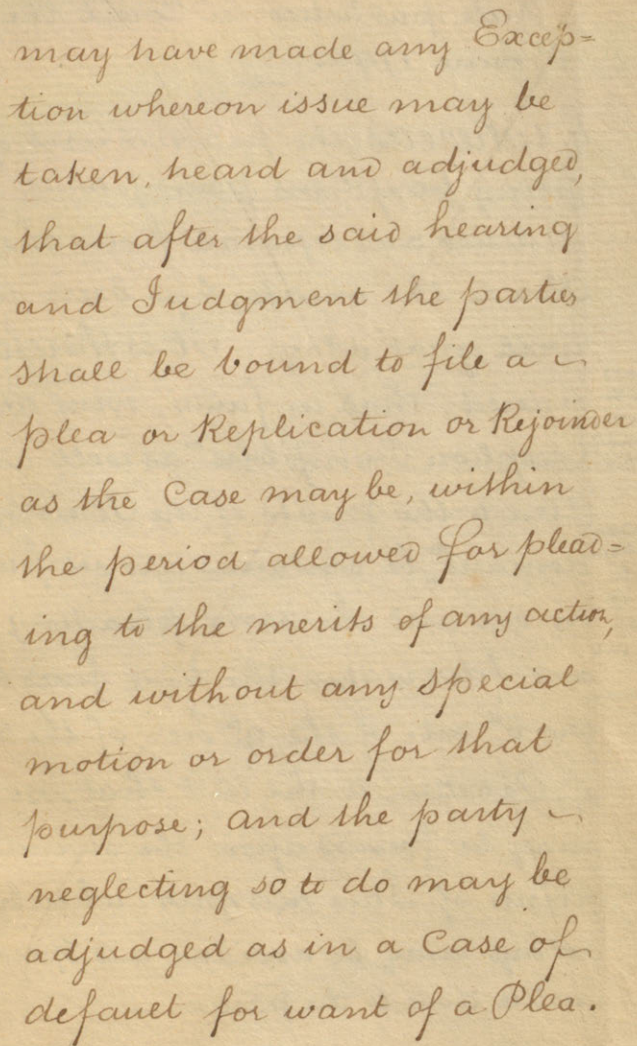 may have made any Excep=
tion whereon issue may be
taken, heard and adjudged,
that after the said hearing
and Judgment the parties
shall be bound to file a ~
plea or Replication or Rejoinder
as the Case may be, within
the period allowed for plead=
ing to the merits of any action,
and without any special
motion or order for that
purpose; and the party ~
neglecting so to do may be
adjudged as in a Case of
default for want of a Plea.